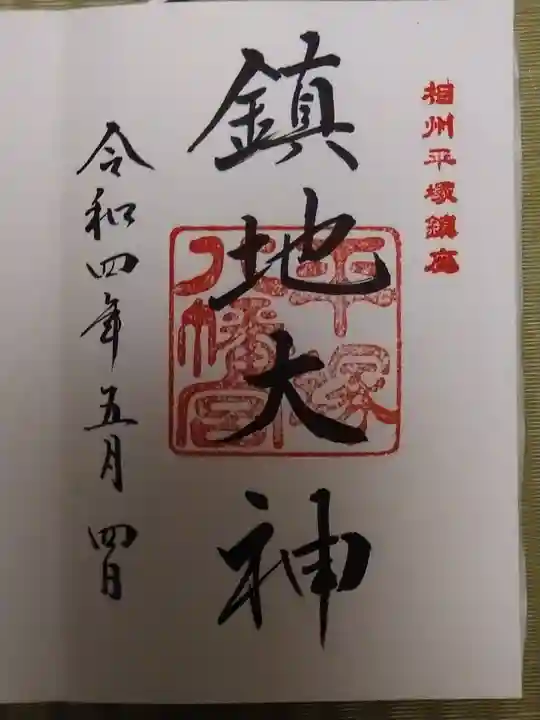 相州平塚鎮座
鎮地大神
平塚
八幡宮
令和四年五月四日